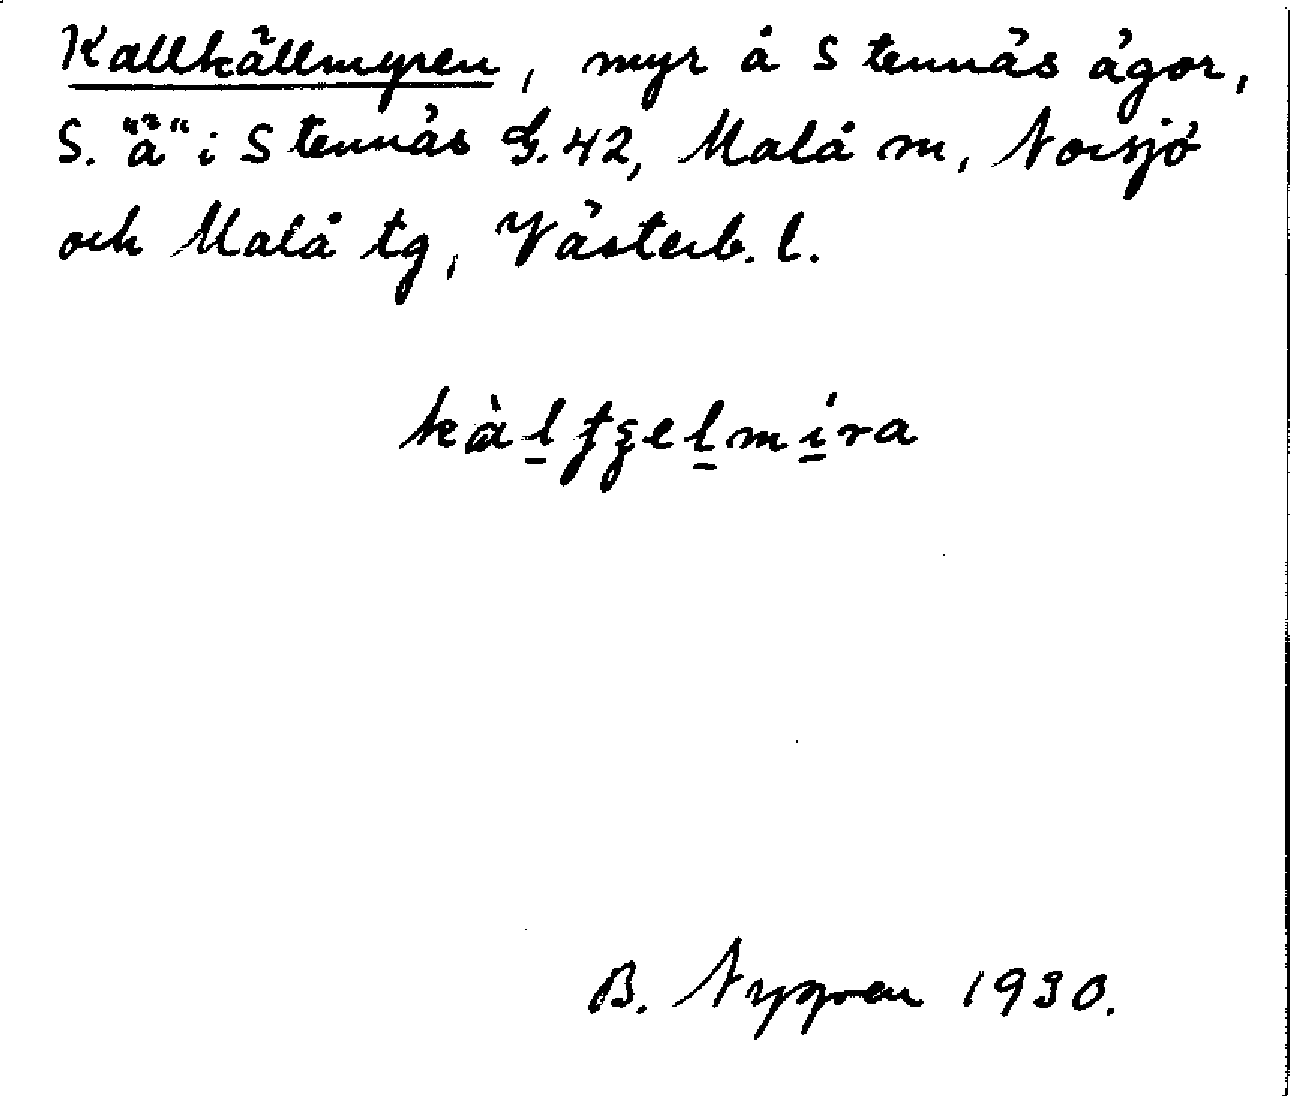 Kallkällmyren, myr å Stennäs ägor,
S. "ä" i Stennäs G.42, Malå sn, Norsjö
och Malå tg, Västerb. l.
kàlʈʂelmíra
B. Nygren 1930.